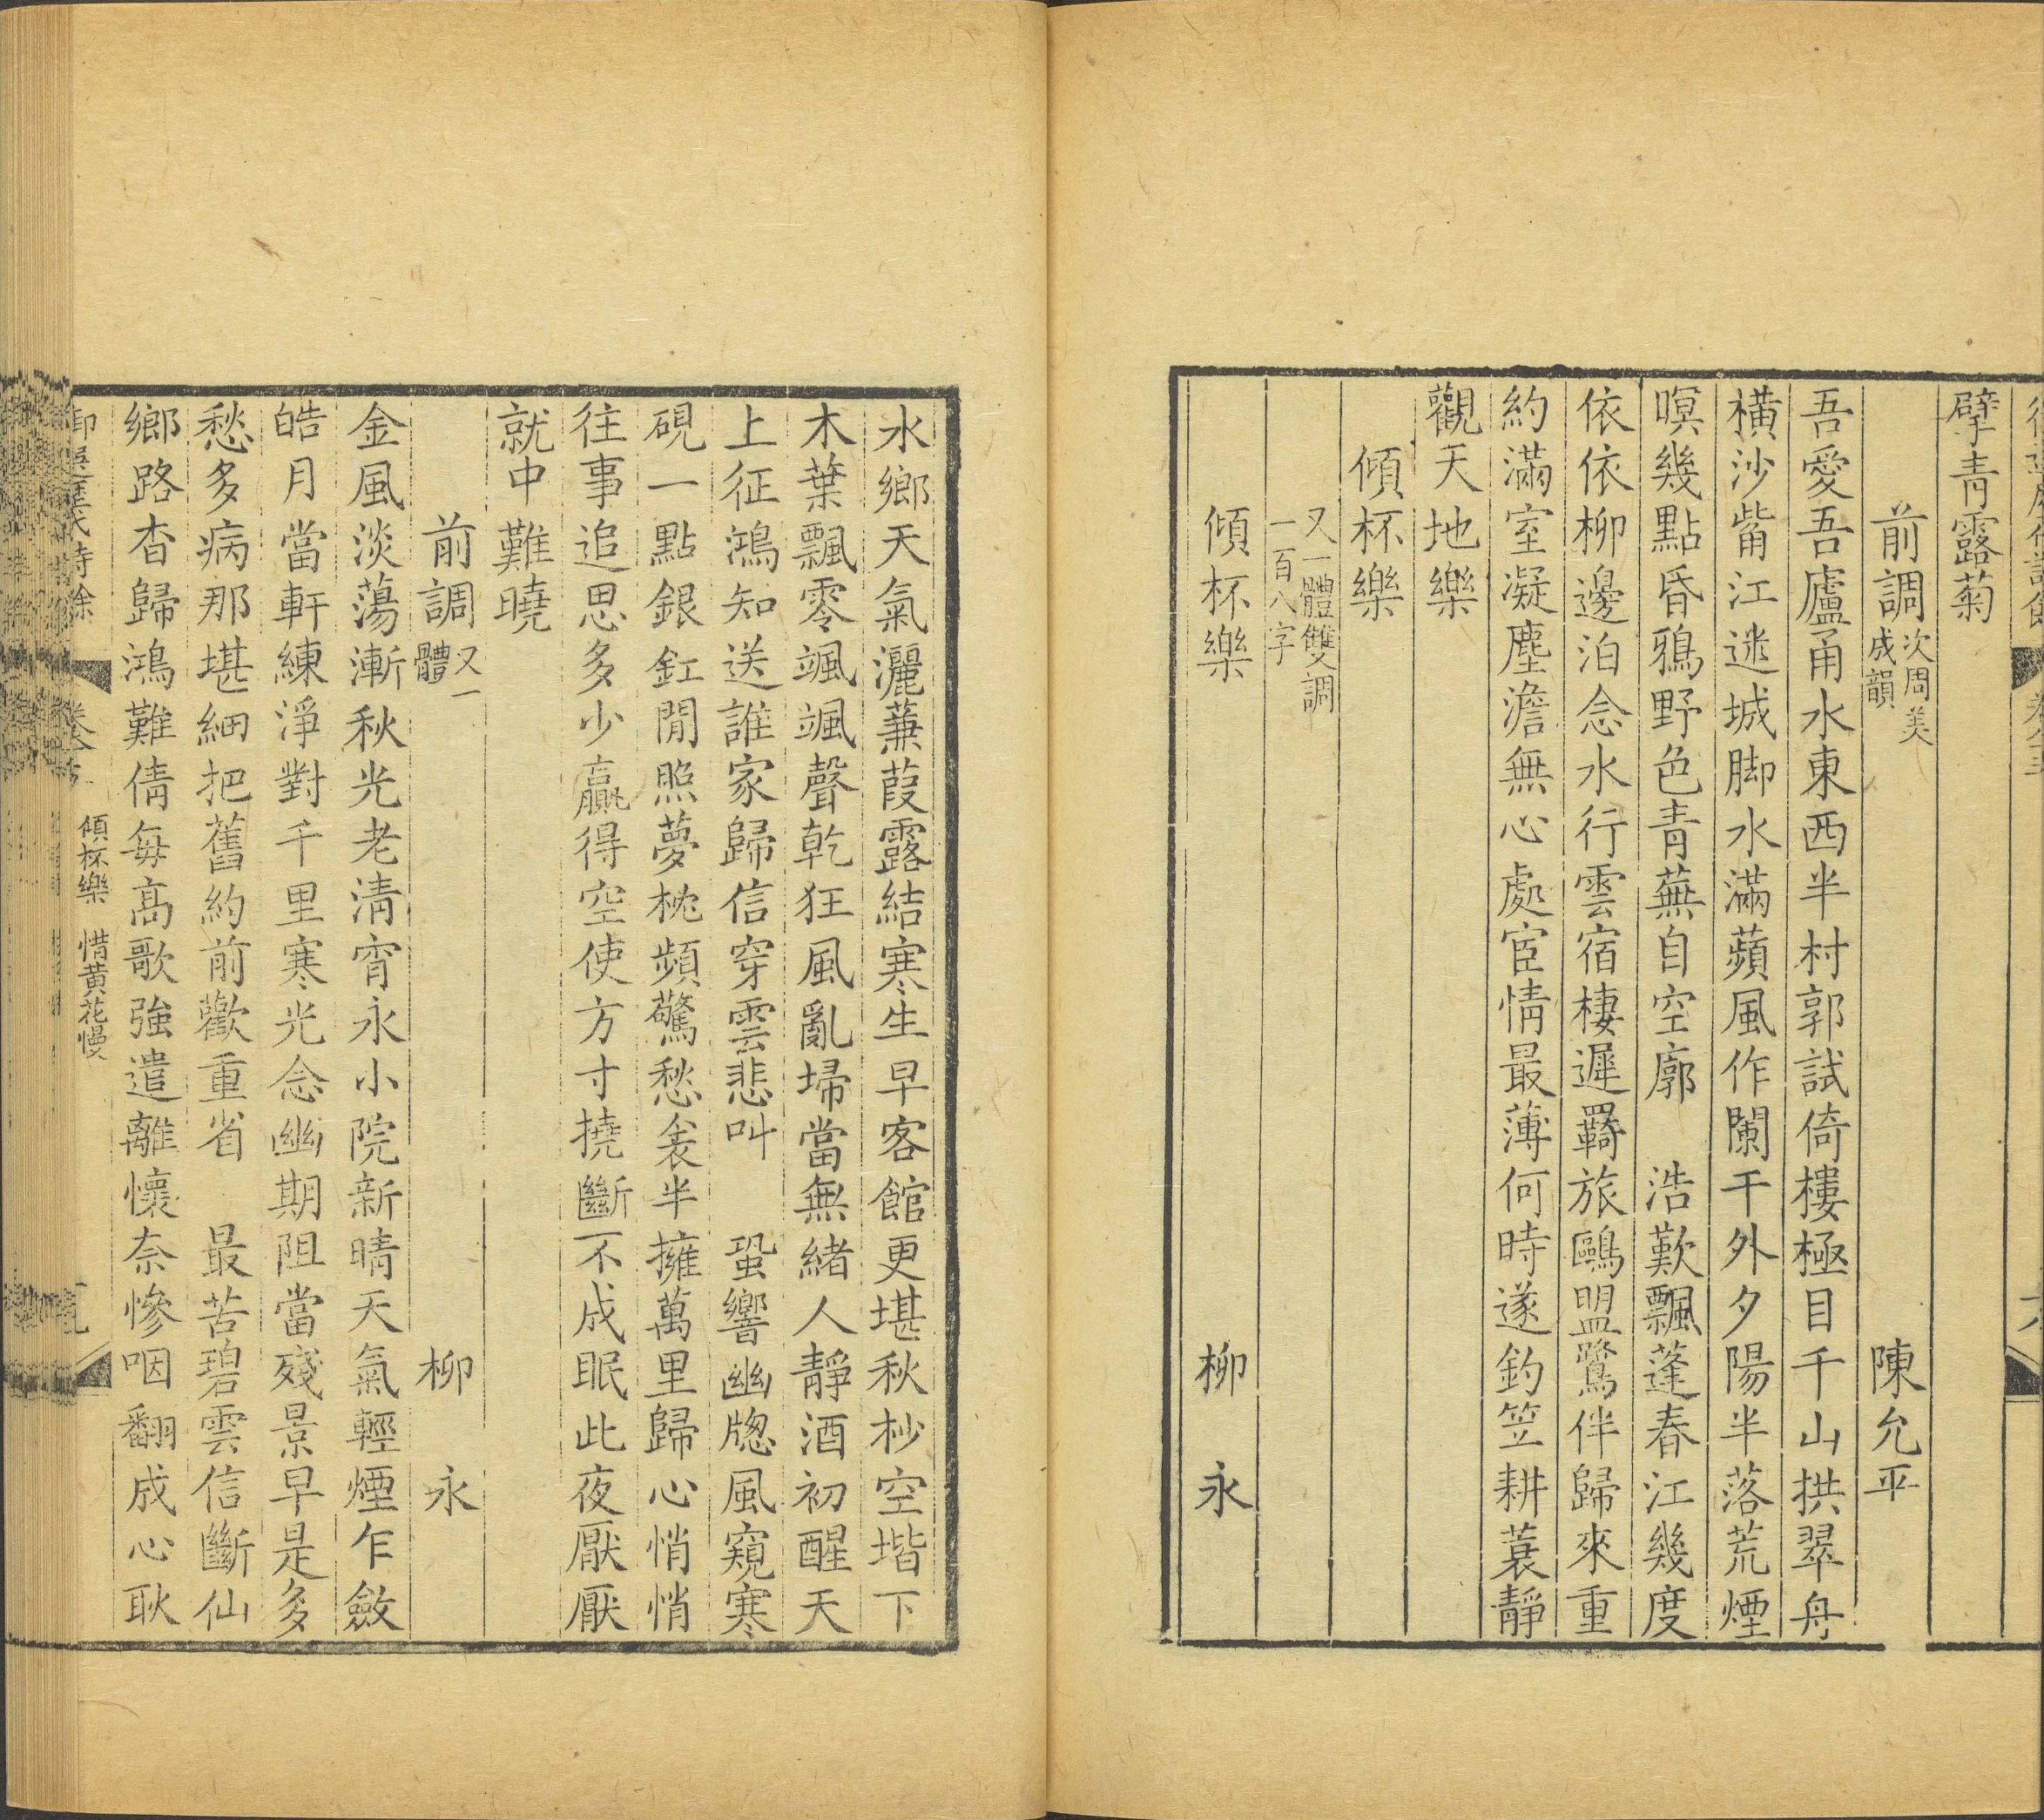 擘青露菊
前調次周美成韻 陳允平
吾愛吾廬甬水東西半村郭試倚樓極目千山拱翠舟
橫沙觜江迷城脚水滿蘋風作闌干外夕陽半落荒煙
暝幾點昏鴉野色青蕪自空廓 浩歎飄蓬春江幾度
依依柳邊泊念水行雲宿棲遲羇旅鷗盟鷺伴歸來重
約滿室凝塵澹無心處宦情最薄何時遂釣笠耕蓑靜
觀天地樂
傾杯樂
又一體雙調
一百八字
傾杯樂 柳永
水鄉天氣灑蒹葭露結寒生早客館更堪秋杪空堦下
木葉飄零颯颯聲乾狂風亂埽當無緒人靜酒初醒天
上征鴻知送誰家歸信穿雲悲叫 蛩響幽牕風窺寒
硯一點銀釭閒照夢枕頻驚愁衾半擁萬里歸心悄悄
往事追思多少贏得空使方寸撓斷不成眠此夜厭厭
就中難曉
前調又一體 柳永
金風淡蕩漸秋光老淸宵永小院新晴天氣輕煙乍斂
皓月當軒練淨對千里寒光念幽期阻當殘景早是多
愁多病那堪細把舊約前歡重省 最苦碧雲信斷仙
鄉路杳歸鴻難倩每高歌強遣離懷奈慘咽翻成心耿
傾杯樂 惜黃花慢